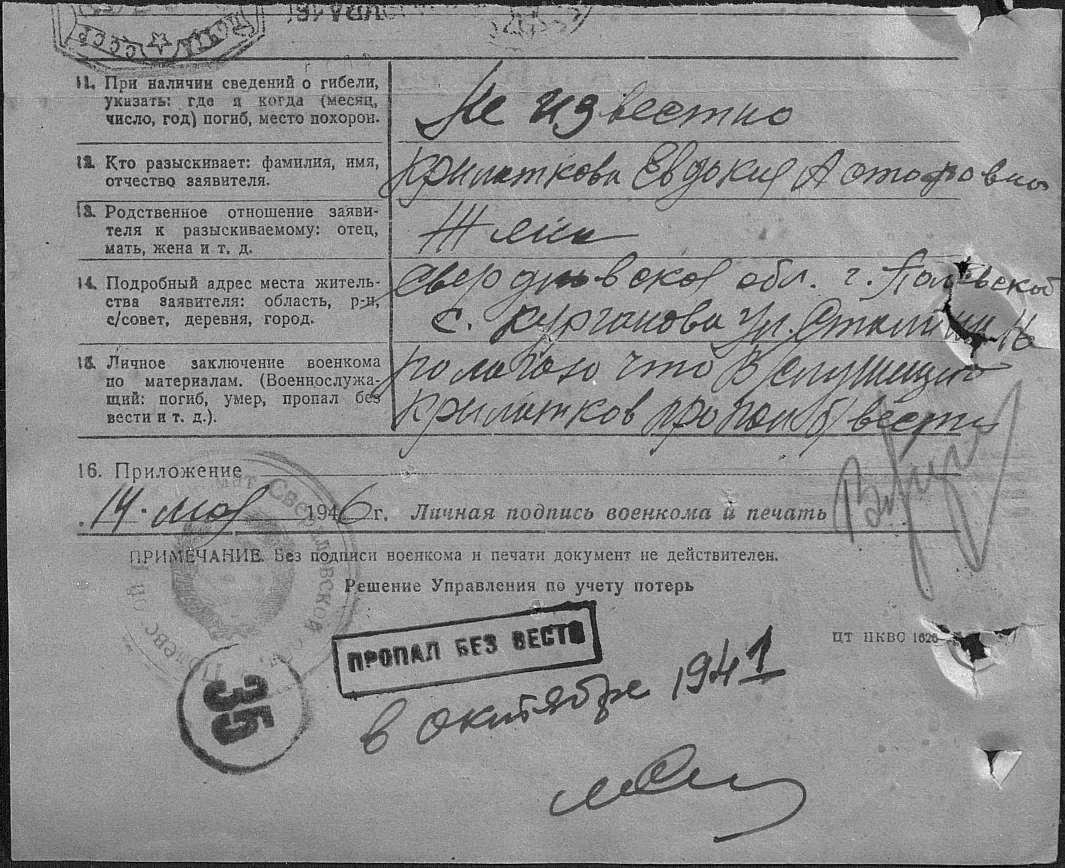 ПОЧТА СССР
11. При наличии сведений о гибели,
указать: где и когда (месяц,
число, год) погиб, место похорон.
Не известно
12. Кто разыскивает: фамилия, имя,
отчество заявителя.
Крылаткова Евдокия
13. Родственное отношение заяви-
теля к разыскиваемому: отец,
мать, жена и т. д.
Жена
14. Подробный адрес места житель-
ства заявителя: область, р-н,
с/совет, деревня, город.
Свердловской обл. г. Полевской
с. Курганова ул. Сталина 16
15. Личное заключение военкома
по материалам. (Военнослужа-
щий: погиб, умер, пропал без
вести и т. д.).
Полагаю что В/служащий
Крылатков пропал б/вести
16. Приложение
14 мая 1946 г. Личная подпись военкома и печать
ПРИМЕЧАНИЕ. Без подписи военкома и печати документ не действителен.
Решение Управления по учету потерь
ЦТ НКВС 1626
ПРОПАЛ БЕЗ ВЕСТИ
35
в октябре 1941